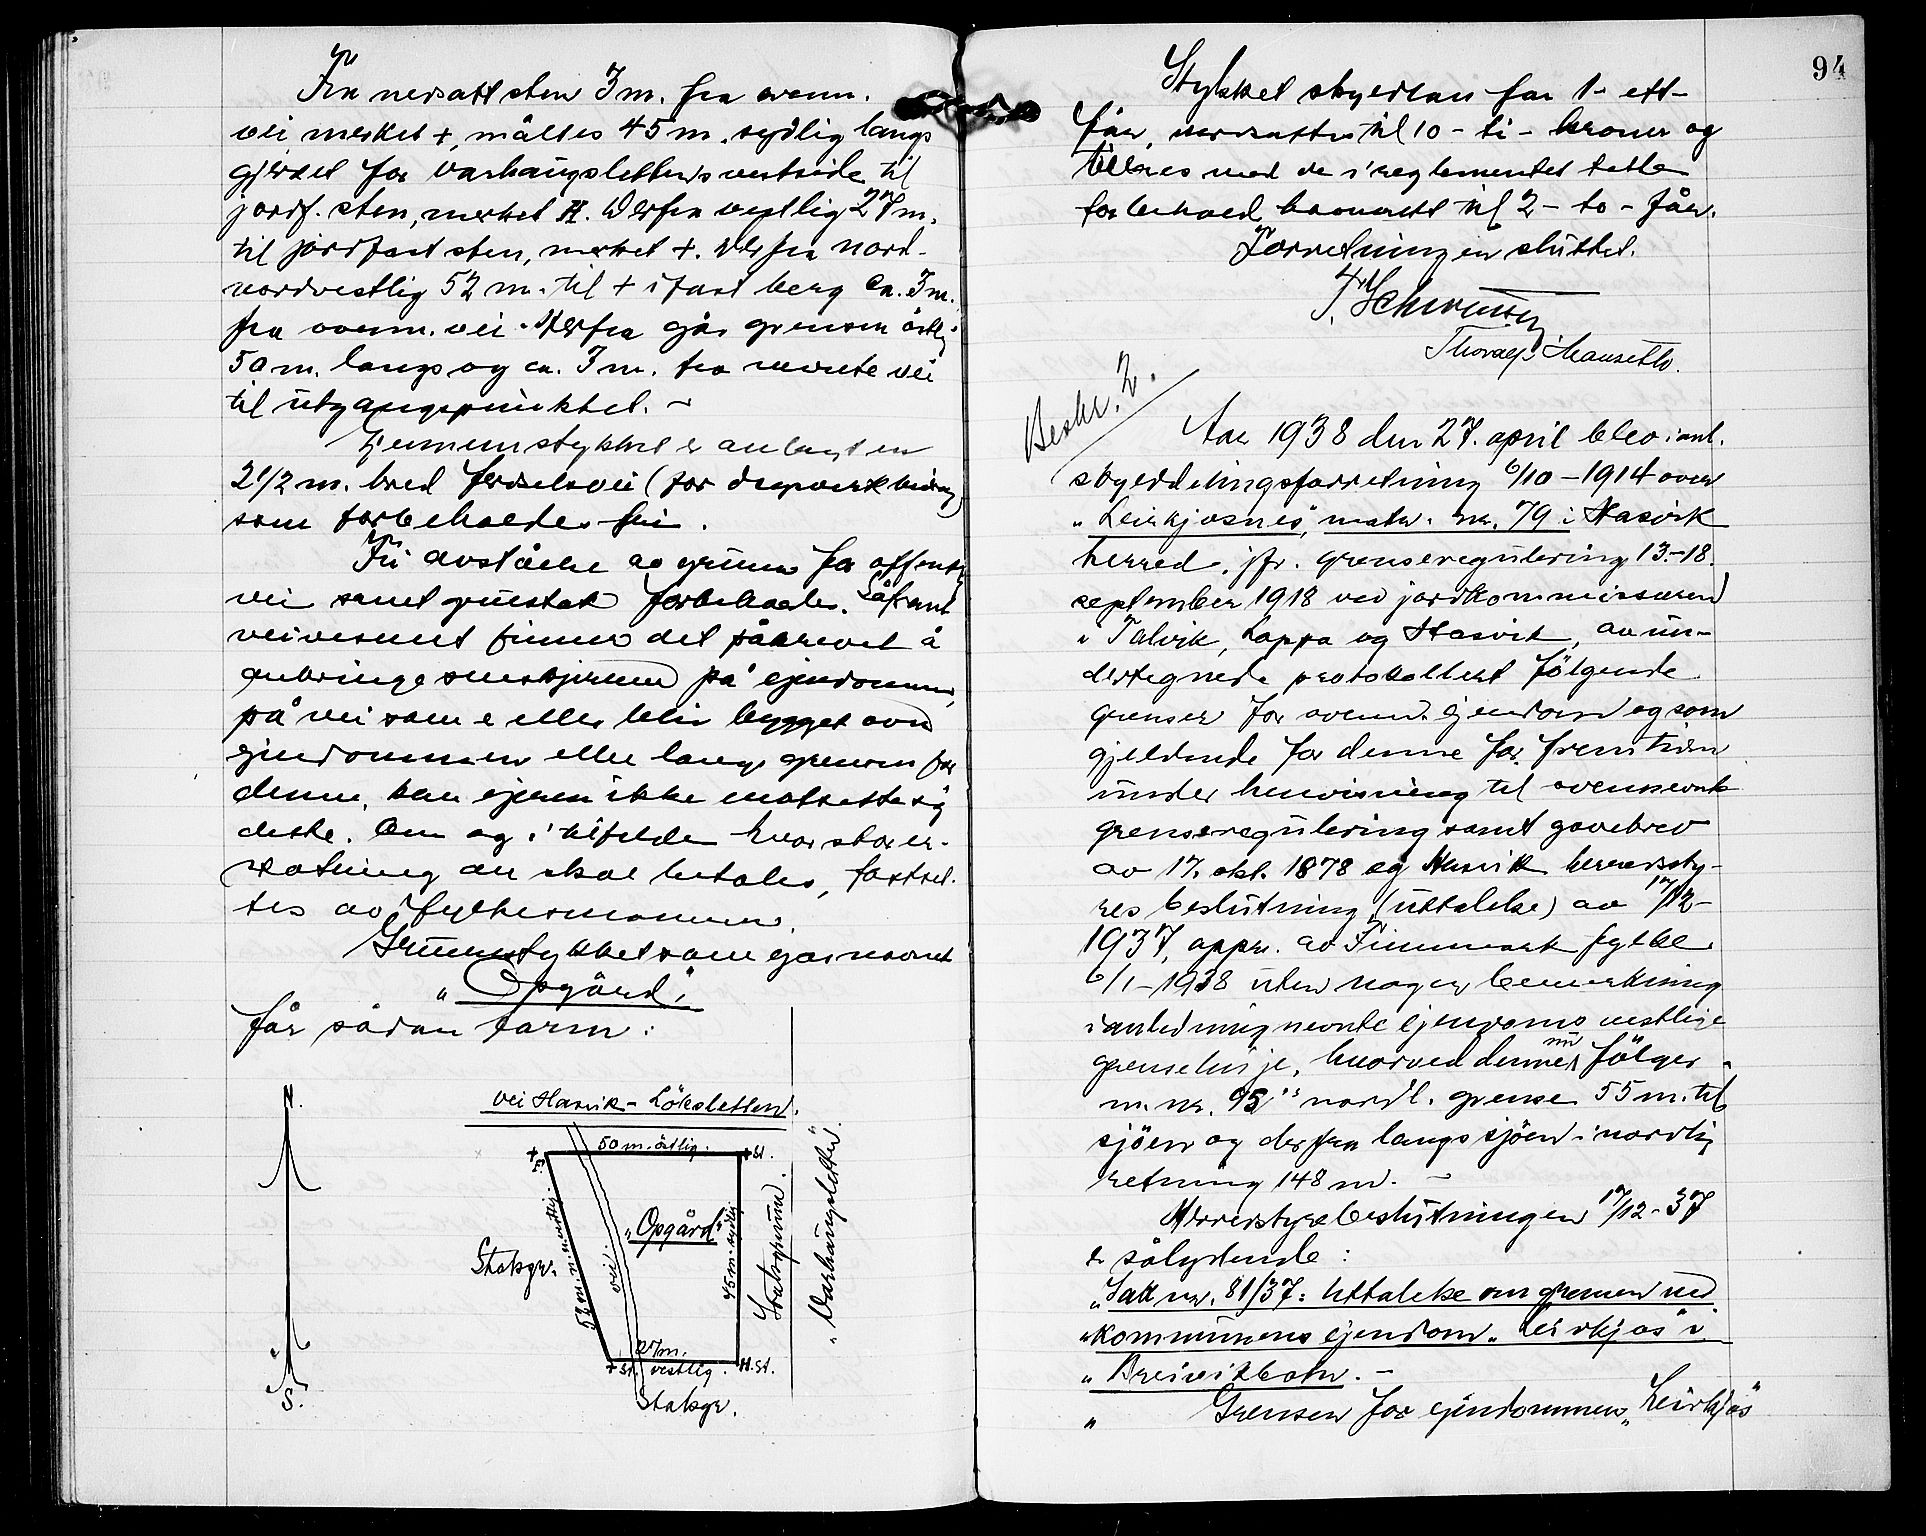 Fra nersatt sten 3 m. fra ovenn.
vei merket +, måltes 45 m. sydlig langs
gjerdet for Varhaugslettens vestside til
jordf. sten, merket H. Derfra vestlig 27 m.
til jordfast sten, merket +. Derfra nord-
nordvestlig 52 m. til + i fast berg ca. 3 m.
fra ovenn. vei. Herfra går grensen östlig
50 m. langs og ca. 3 m. fra nevnte vei
til utgangspunktet. -
Gjennem stykket er anlagt en
2 1/2 m. bred ferdselsvei (for
som forbeholdes fri.
Fri avståelse av grunn for offentlig
vei samt grustak forbeholdes. Såfremt
veivesenet finner det påkrevet å
anbringe sneskjermer på eiendommen,
på vei som er eller blir bygget over
eiendommen eller langs grensen for
denne, kan eieren ikke motsette sig
dette. Om og i tilfelde hvor stor er-
statning der skal betales, fastset-
tes av fylkesmannen.
Grunnstykket som gis navnet
"Opgård",
får sådan form:
N.
S.
Vei Hasvik - Löksletten.
50 m. östlig.
+ F.
+ St.
52 m. n. nordlig.
vei.
"Opgård"
45 m. sydlig
Statsgr.
Statsgrunn.
"Varhaugsletten".
27 m.
vestlig.
+ St.
H. St.
Statsgr.
94
Stykket skyldlan for 1 - ett -
öre, verdsattes til 10 - ti - kroner og
tillires med de i reglementet tatte
forbehold bonmatt til 2 - to - får.
Forretningen sluttet.
Thoralf Hauseth.
Beskr. 2.
Aar 1938 den 27. april blev i anl.
skylddelingsforretning 6/10 - 1914 over
"Leirkjosnes", matr. nr. 79 i Hasvik
herred, jfr. grenseregulering 13.-18.
september 1918 ved jordkommissæren
i Talvik, Loppa og Hasvik, av un-
dertegnede protokollert fölgende
grenser for ovenn. eiendom og som
gjeldende for denne for fremtiden
under henvisning til ovennevnte
grenseregulering samt gavebrev
av 17. okt. 1878 og Hasvik herredssty-
res beslutning (uttalelse) av 17/12 -
1937, appr. av Finnmark fylke
6/1 - 1938 uten nogen bemerkning
i anledning nevnte eiendoms vestlige
grenselinje, hvorved denne nu fölger
m. nr. 95's nordl. grense 55 m. til
sjöen og derfra langs sjöen i nordlig
retning 148 m. -
Herredstyrebeslutningen 17/12 - 37
er sålydende:
"Sak nr. 81/37: Uttalelse om grensen ved
"kommunens eiendom "Leirkjos" i
"Breivikbotn. -
" Grensen for eiendommen "Leirkjos"